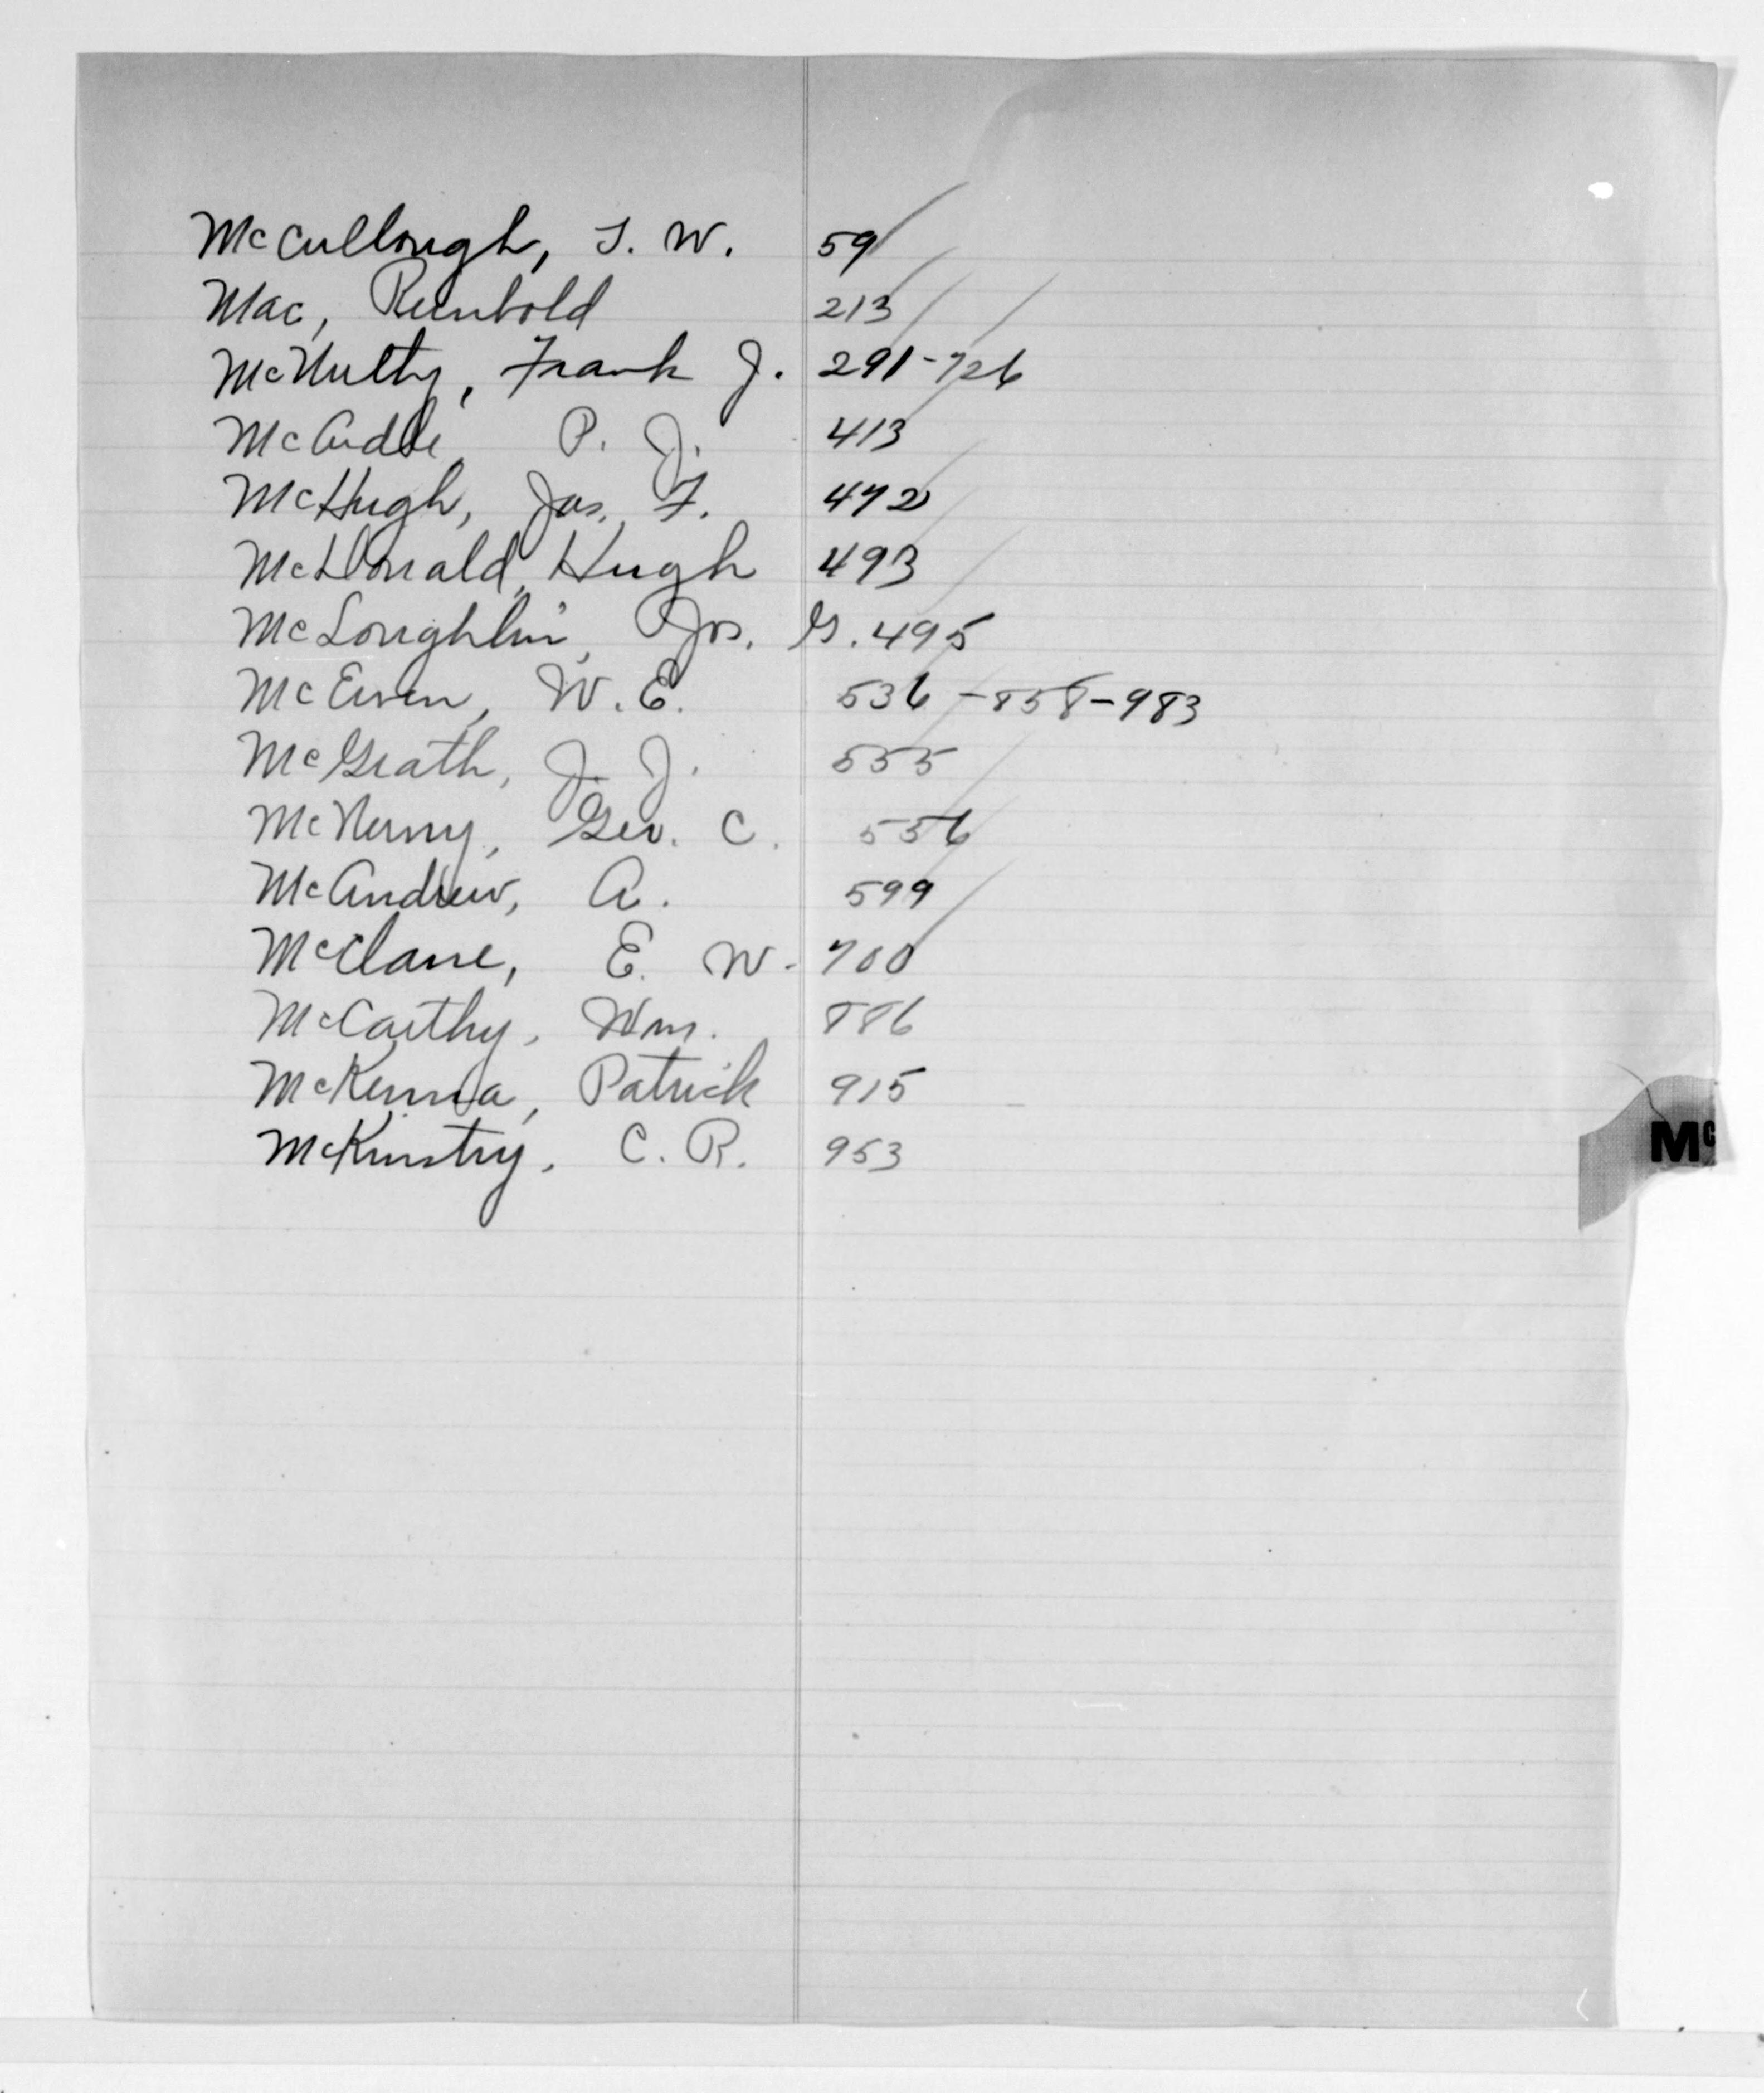 McCullough, T. W. 59
Mac, Reinbold 213
McNulty, Frank J. 291-726
McArdle, P. J. 413
McHugh, Jas. F. 472
McDonald, Hugh 493
McLoughlin, Jos. G. 495
McEwen, W. E. 536-858-983
McGrath, J. J. 555
McNerny, Geo. C. 556
McAndrew, A. 599
McClane, E. W. 700
McCarthy, Wm. 886
McKenna, Patrick 915
McKinstry, C. R. 953
Mc